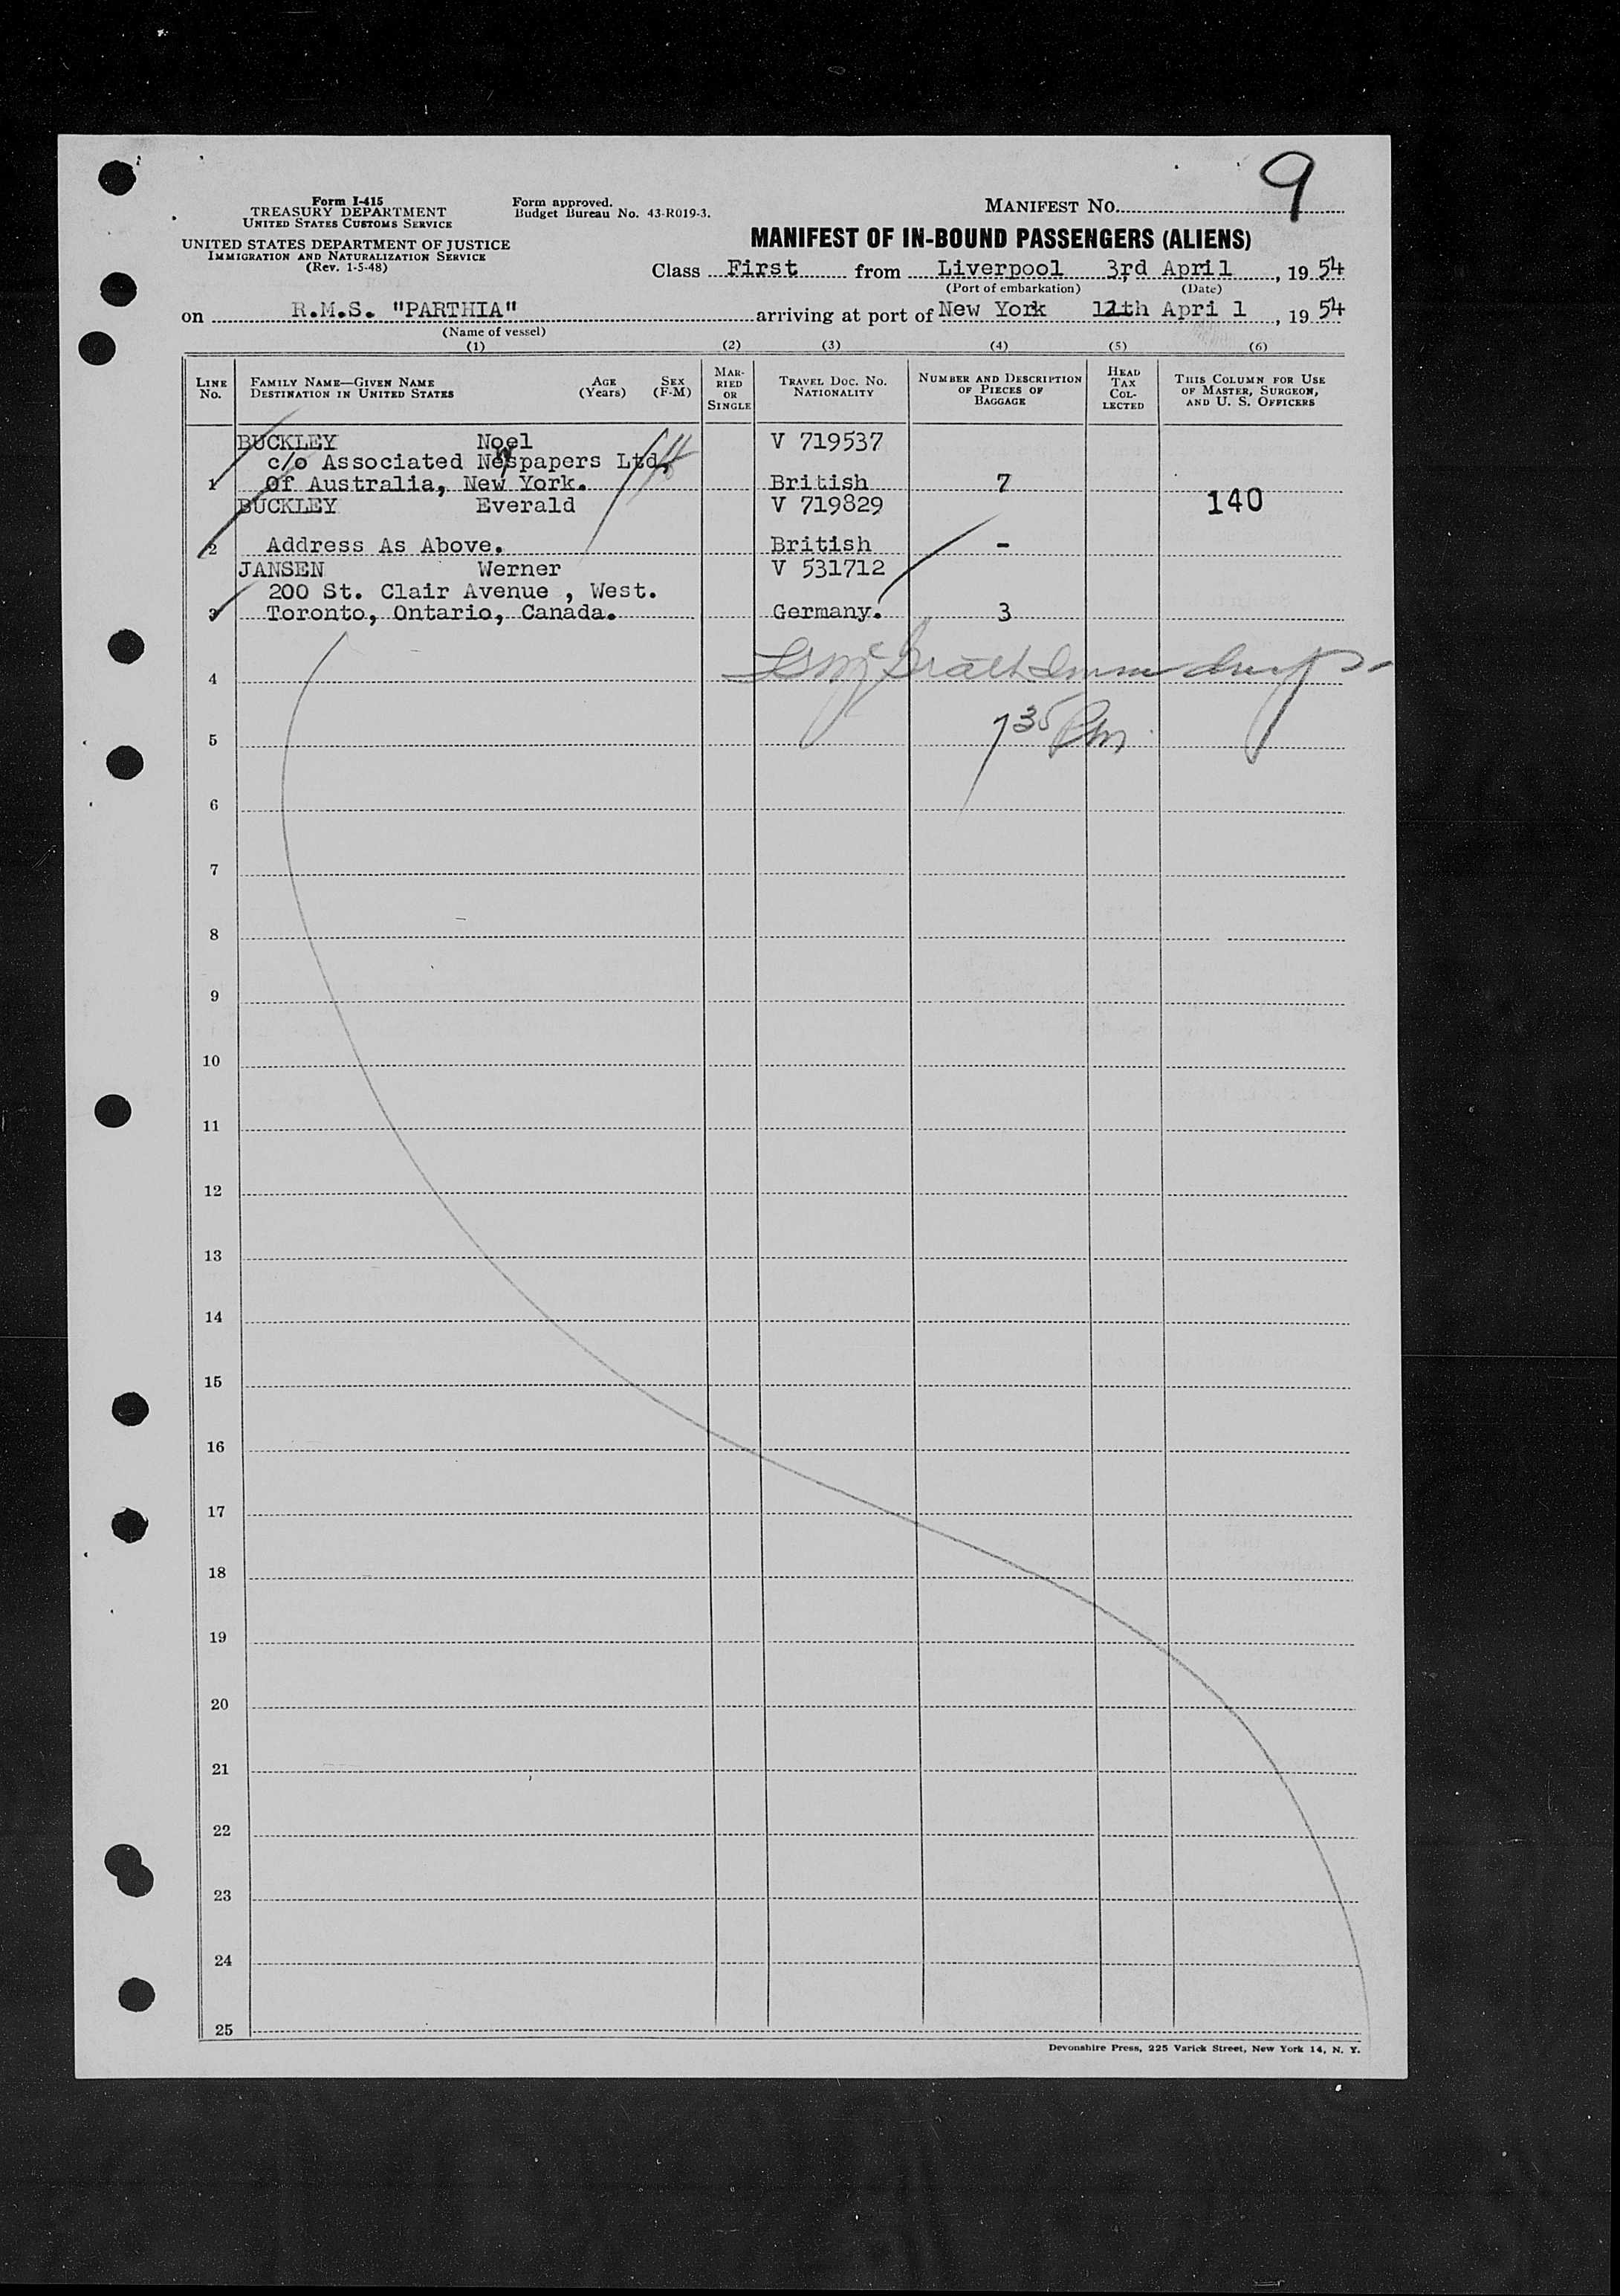 9
Form I-415
TREASURY DEPARTMENT
UNITED STATES CUSTOMS SERVICE
Form approved.
Budget Bureau No. 43-R019-3.
MANIFEST NO.
UNITED STATES DEPARTMENT OF JUSTICE
IMMIGRATION AND NATURALIZATION SERVICE
(Rev. 1-5-48)
MANIFEST OF IN-BOUND PASSENGERS (ALIENS)
Class First from Liverpool 3rd April, 1954
(Port of embarkation) (Date)
on R.M.S. "PARTHIA" arriving at port of New York April, 1954
(Name of vessel)
(1) (2) (3) (4) (5) (6)
LINE No. FAMILY NAME—GIVEN NAME DESTINATION IN UNITED STATES AGE (Years) SEX (F-M) MARRIED OR SINGLE TRAVEL DOC. NO. NATIONALITY NUMBER AND DESCRIPTION OF PIECES OF BAGGAGE HEAD TAX COLLECTED THIS COLUMN FOR USE OF MASTER, SURGEON, AND U. S. OFFICERS
BUCKLEY Noel V 719537
c/o Associated Newspapers Ltd,
1 Of Australia, New York. British 7
BUCKLEY Everald V 719829 140
2 Address As Above. British -
JANSEN Werner V 531712
200 St. Clair Avenue , West.
3 Toronto, Ontario, Canada. Germany. 3
4
7 35 Pm
5
6
7
8
9
10
11
12
13
14
15
16
17
18
19
20
21
22
23
24
25
Devonshire Press, 225 Varick Street, New York 14, N. Y.